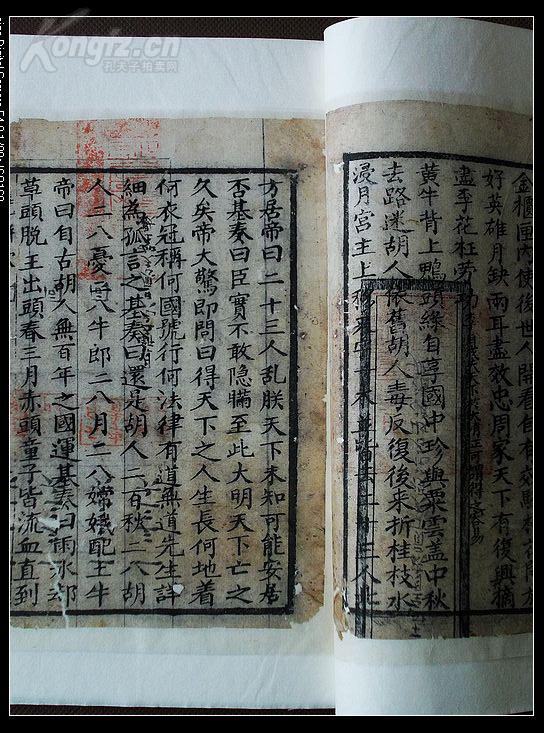 Kongfz.cn
孔夫子拍卖网
金櫃匣內使後世人開看自有
好英雄月缺兩耳盡效忠周家天下有復興摘
盡李花枉勞功
黄牛背上鴨頭綠自孚國中珍與粟雲蓋中秋
去路迷胡人依舊胡人毒反復後来折桂枝水
浸月宮主上 二十三人
方居帝曰二十三人乱朕天下未知可能安居
否基奏曰臣實不敢隐瞞至此大明天下亡之
久矣帝大驚即問曰得天下之人生長何地着
何衣冠稱何國號行何法律有道無道先生詳
細為孤言之基奏曰還是胡人二百秋二八胡
人二八憂二八牛郎二八月二八嫦娥配土牛
帝曰自古胡人無百年之國運基奏曰雨水
草頭脱王出頭春三月赤頭童子皆流血直到